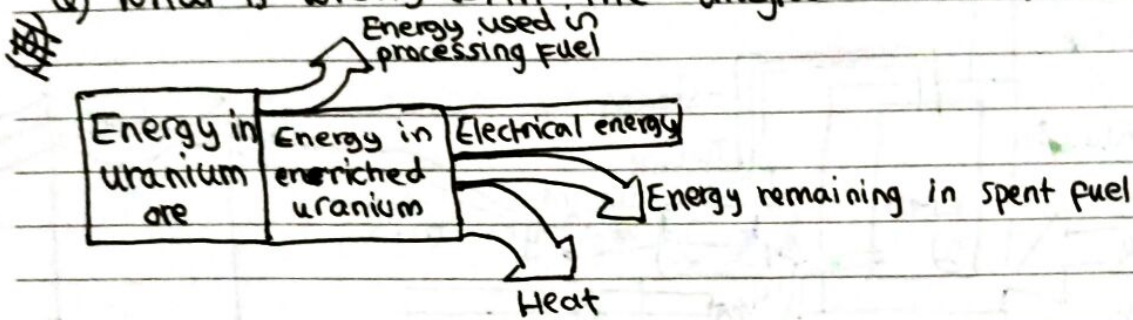 Q) What is wrong with the
Energy used in
processing fuel
Energy in
uranium
ore
Energy in
enerriched
uranium
Electrical energy
Energy remaining in spent fuel
Heat